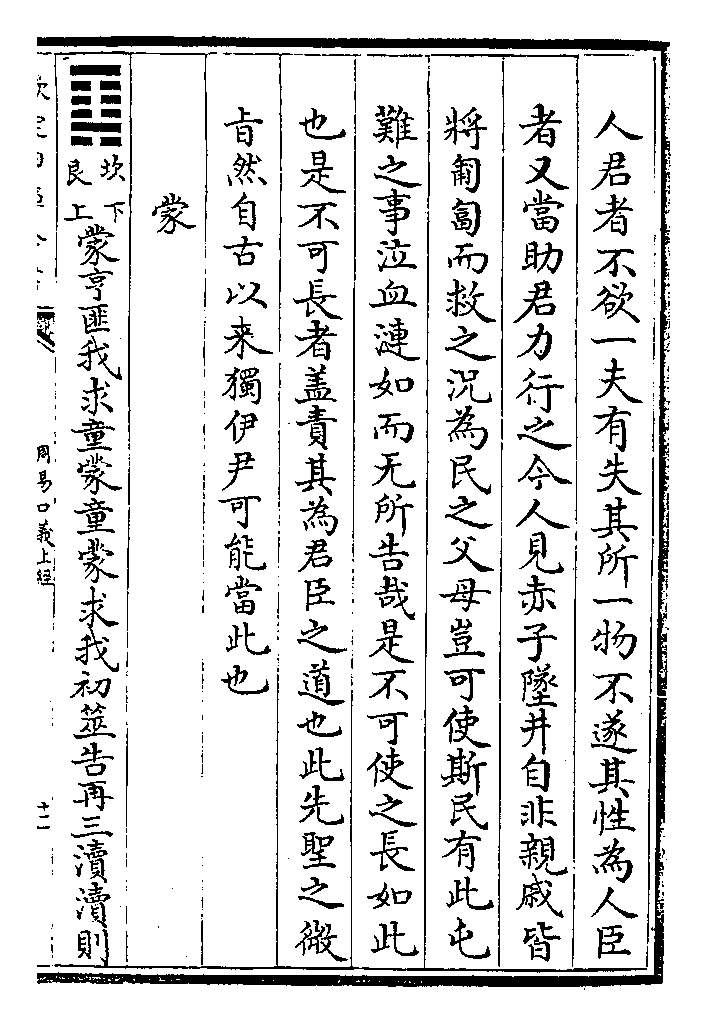 人君者不欲一夫有失其所一物不遂其性為人臣
者又當助君力行之今人見赤子墜井自非親戚皆
將匍匐而救之況為民之父母豈可使斯民有此屯
難之事泣血漣如而无所告哉是不可使之長如此
也是不可長者盖責其為君臣之道也此先聖之微
㫖然自古以来獨伊尹可能當此也
蒙
坎下
艮上
蒙亨匪我求童蒙童蒙求我初筮告再三瀆瀆則
周易口義上經
十二